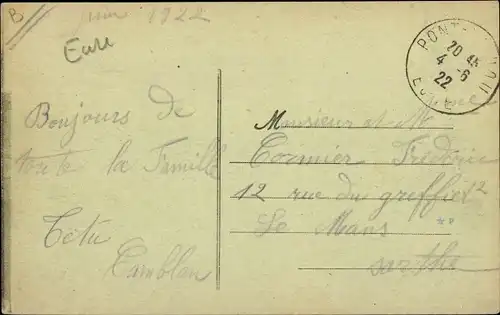 B
juin 1922
Eure
PONT-
20 45
4 - 6
22
EURE
Bonjours de
toute la Famille
Tetu
Camblan
Monsieur et Mme
Cormier Fréderic
12 rue du greffier 12
Le Mans
sarthe